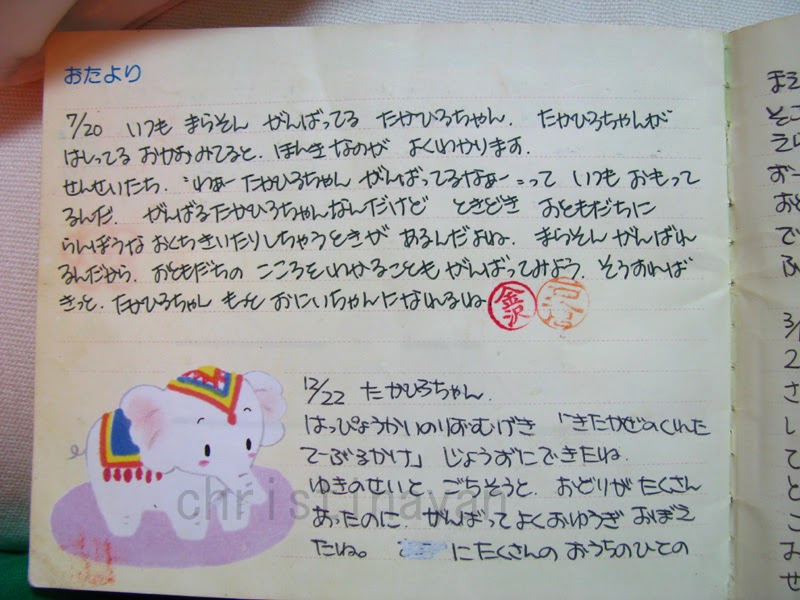 おたより
7/20 いつも まらそん がんばってる たかひろちゃん. たかひろちゃんが
はしってる おかおみてると. ほんきなのが よくわかります.
せんせいたち. "わぁー たかひろちゃん がんばってるなぁー"って いつも おもって
るんだ. がんばるたかひろちゃんなんだけど ときどき おともだちに
らんぼうな おくちきいたりしちゃうときが あるんだよね. まらそん がんばれ
るんだから. おともだちの こころをわかることも がんばってみよう. そうすれば
きっと. たかひろちゃん もっと おにいちゃんになれるね
金沢
12/22 たかひろちゃん.
はっぴょうかいのりずむげき 「きたかぜのくれた
てーぶるかけ」 じょうずにできたね.
ゆきのせいと. ごちそうと. おどりが たくさん
あったのに. がんばって よく おゆうぎ おぼえ
たね。 にたくさんの おうちのひとの
christinayan